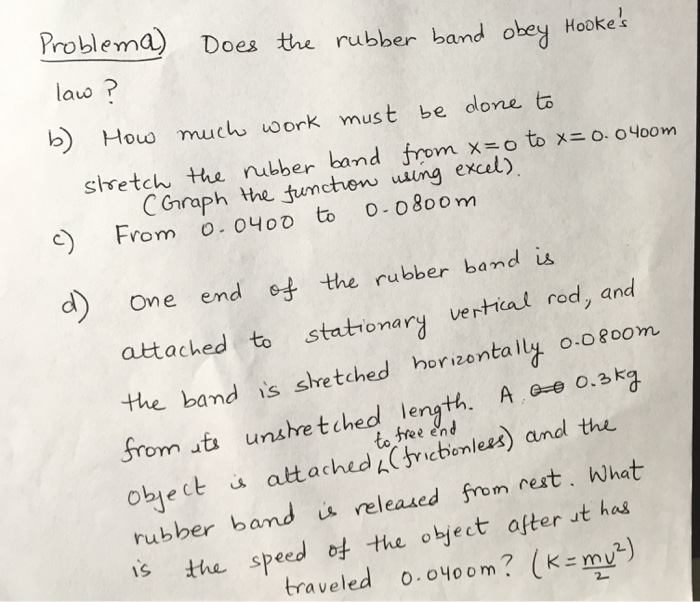 Problem a) Does the rubber band obey Hooke's
law ?
b) How much work must be done to
stretch the rubber band from x=0 to x=0.0400m
(Graph the function using excel).
c) From 0.0400 to 0.0800m
d) One end of the rubber band is
attached to stationary vertical rod, and
the band is stretched horizontally 0.0800m
from its unstretched length. A 0.3kg
to free end
object is attached (frictionless) and the
rubber band is released from rest. What
is the speed of the object after it has
traveled 0.0400m? (K=mv²/2)